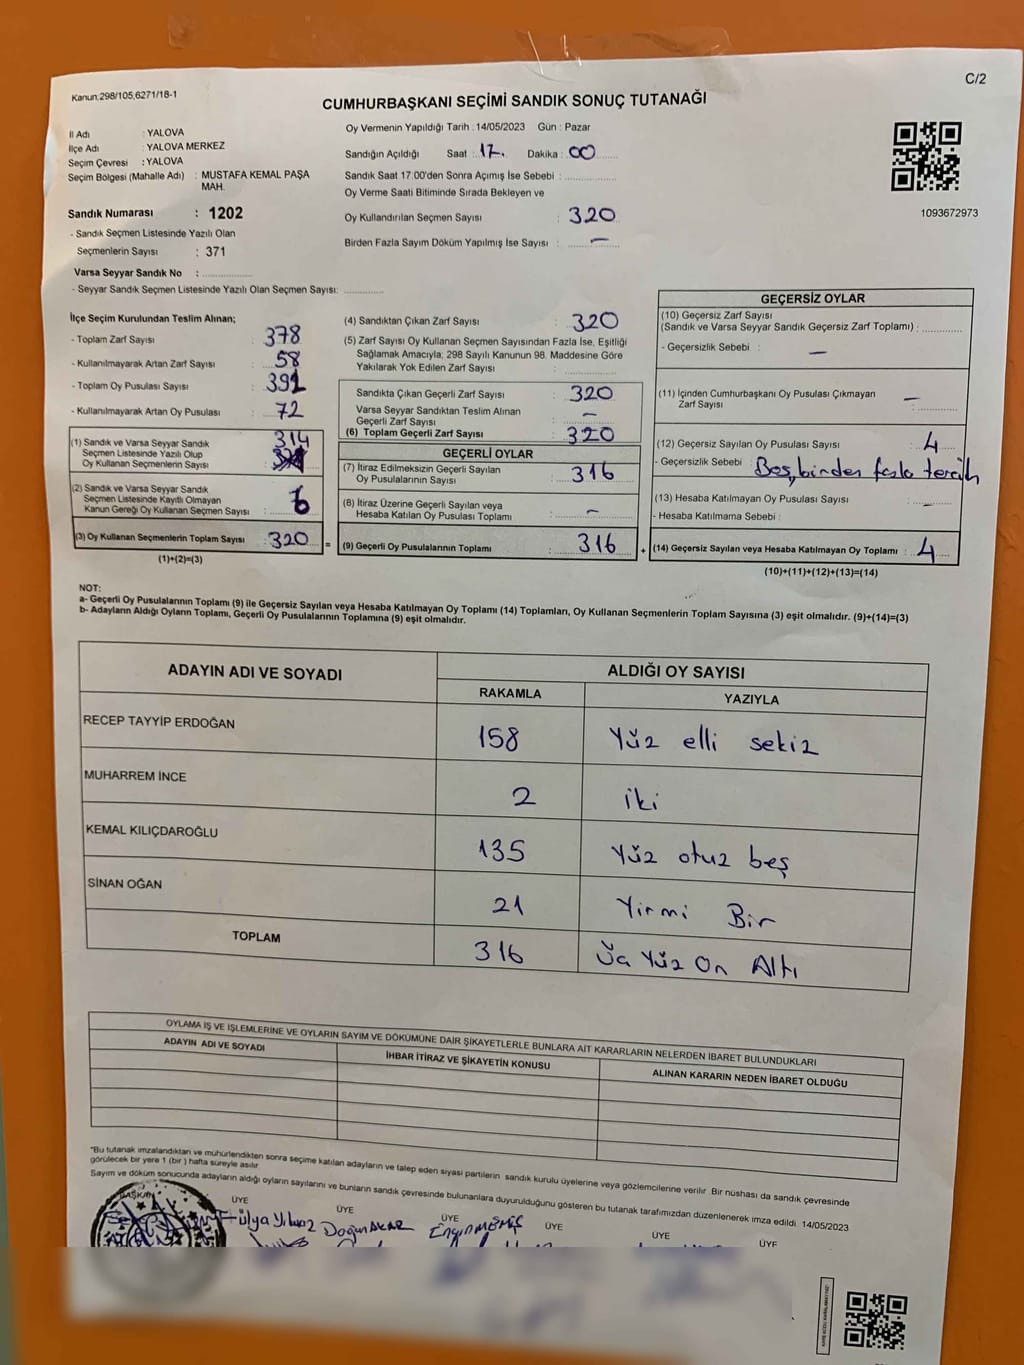 C/2
Kanun:298/105,6271/18-1
CUMHURBAŞKANI SEÇİMİ SANDIK SONUÇ TUTANAĞI
İl Adı : YALOVA
İlçe Adı : YALOVA MERKEZ
Seçim Çevresi : YALOVA
Seçim Bölgesi (Mahalle Adı) : MUSTAFA KEMAL PAŞA
MAH.
Sandık Numarası : 1202
- Sandık Seçmen Listesinde Yazılı Olan
Seçmenlerin Sayısı : 371
Varsa Seyyar Sandık No :
- Seyyar Sandık Seçmen Listesinde Yazılı Olan Seçmen Sayısı:
Oy Vermenin Yapıldığı Tarih : 14/05/2023 Gün : Pazar
Sandığın Açıldığı Saat : 17. Dakika : 00
Sandık Saat 17.00'den Sonra Açımış İse Sebebi :
Oy Verme Saati Bitiminde Sırada Bekleyen ve
Oy Kullandırılan Seçmen Sayısı : 320
Birden Fazla Sayım Döküm Yapılmış İse Sayısı : —
1093672973
İlçe Seçim Kurulundan Teslim Alınan;
- Toplam Zarf Sayısı : 378
- Kullanılmayarak Artan Zarf Sayısı : 58
- Toplam Oy Pusulası Sayısı : 392
- Kullanılmayarak Artan Oy Pusulası : 72
(1) Sandık ve Varsa Seyyar Sandık
Seçmen Listesinde Yazılı Olup
Oy Kullanan Seçmenlerin Sayısı : 314
(2) Sandık ve Varsa Seyyar Sandık
Seçmen Listesinde Kayıtlı Olmayan
Kanun Gereği Oy Kullanan Seçmen Sayısı : 6
(3) Oy Kullanan Seçmenlerin Toplam Sayısı : 320
(1)+(2)=(3)
(4) Sandıktan Çıkan Zarf Sayısı : 320
(5) Zarf Sayısı Oy Kullanan Seçmen Sayısından Fazla İse, Eşitliği
Sağlamak Amacıyla; 298 Sayılı Kanunun 98. Maddesine Göre
Yakılarak Yok Edilen Zarf Sayısı :
Sandıkta Çıkan Geçerli Zarf Sayısı : 320
Varsa Seyyar Sandıktan Teslim Alınan
Geçerli Zarf Sayısı : —
(6) Toplam Geçerli Zarf Sayısı : 320
GEÇERLİ OYLAR
(7) İtiraz Edilmeksizin Geçerli Sayılan
Oy Pusulalarının Sayısı : 316
(8) İtiraz Üzerine Geçerli Sayılan veya
Hesaba Katılan Oy Pusulası Toplamı : —
(9) Geçerli Oy Pusulalarının Toplamı : 316
GEÇERSİZ OYLAR
(10) Geçersiz Zarf Sayısı
(Sandık ve Varsa Seyyar Sandık Geçersiz Zarf Toplamı) :
- Geçersizlik Sebebi : —
(11) İçinden Cumhurbaşkanı Oy Pusulası Çıkmayan
Zarf Sayısı : —
(12) Geçersiz Sayılan Oy Pusulası Sayısı : 4
- Geçersizlik Sebebi : Boş, birden fazla tercih
(13) Hesaba Katılmayan Oy Pusulası Sayısı :
- Hesaba Katılmama Sebebi : —
+ (14) Geçersiz Sayılan veya Hesaba Katılmayan Oy Toplamı : 4
(10)+(11)+(12)+(13)=(14)
NOT:
a- Geçerli Oy Pusulalarının Toplamı (9) ile Geçersiz Sayılan veya Hesaba Katılmayan Oy Toplamı (14) Toplamları, Oy Kullanan Seçmenlerin Toplam Sayısına (3) eşit olmalıdır. (9)+(14)=(3)
b- Adayların Aldığı Oyların Toplamı, Geçerli Oy Pusulalarının Toplamına (9) eşit olmalıdır.
ADAYIN ADI VE SOYADI ALDIĞI OY SAYISI
RAKAMLA YAZIYLA
RECEP TAYYİP ERDOĞAN 158 Yüz elli sekiz
MUHARREM İNCE 2 iki
KEMAL KILIÇDAROĞLU 135 Yüz otuz beş
SİNAN OĞAN 21 Yirmi Bir
TOPLAM 316 Üç Yüz On Altı
OYLAMA İŞ VE İŞLEMLERİNE VE OYLARIN SAYIM VE DÖKÜMÜNE DAİR ŞİKAYETLERLE BUNLARA AİT KARARLARIN NELERDEN İBARET BULUNDUKLARI
ADAYIN ADI VE SOYADI İHBAR İTİRAZ VE ŞİKAYETİN KONUSU ALINAN KARARIN NEDEN İBARET OLDUĞU
*Bu tutanak imzalandıktan ve mühürlendikten sonra seçime katılan adayların ve talep eden siyasi partilerin sandık kurulu üyelerine veya gözlemcilerine verilir. Bir nüshası da sandık çevresinde
görülecek bir yere 1 (bir ) hafta süreyle asılır.
Sayım ve döküm sonucunda adayların aldığı oyların sayılarını ve bunların sandık çevresinde bulunanlara duyurulduğunu gösteren bu tutanak tarafımızdan düzenlenerek imza edildi. 14/05/2023
BAŞKAN ÜYE ÜYE ÜYE ÜYE ÜYE ÜYE
Hülya Yılmaz Doğan AKAR Engin MEMİŞ